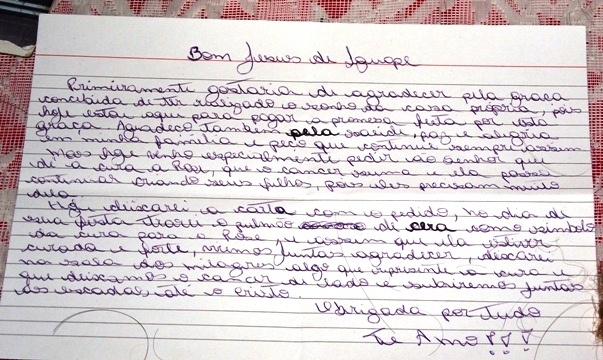 Bom Jesus de Iguape
Primeiramente gostaria de agradecer pela graça
concebida de ter realizado o sonho da casa própria, pois
hoje estou aqui para pagar a promessa feita por esta
graça. Agradeço também pela saúde, paz e alegria
em minha família e peço que continue sempre assim
Mas hoje venho especialmente pedir ao senhor que
dê a cura a Rose, que o cancer suma e ela possa
continuar criando seus filhos, pois eles precisam muito
dela.
Hoje deixarei a carta com o pedido, no dia de
sua festa trarei o pulmão de cera como simbolo
da cura para a Rose, e assim que ela estiver
curada e forte, viremos juntas agradecer, deixarei
na sala dos milagres algo que represente a cura e
que deixamos o cancer de lado e subiremos juntas
as escadas até o cristo.
Obrigada por tudo
Te Amo!!!